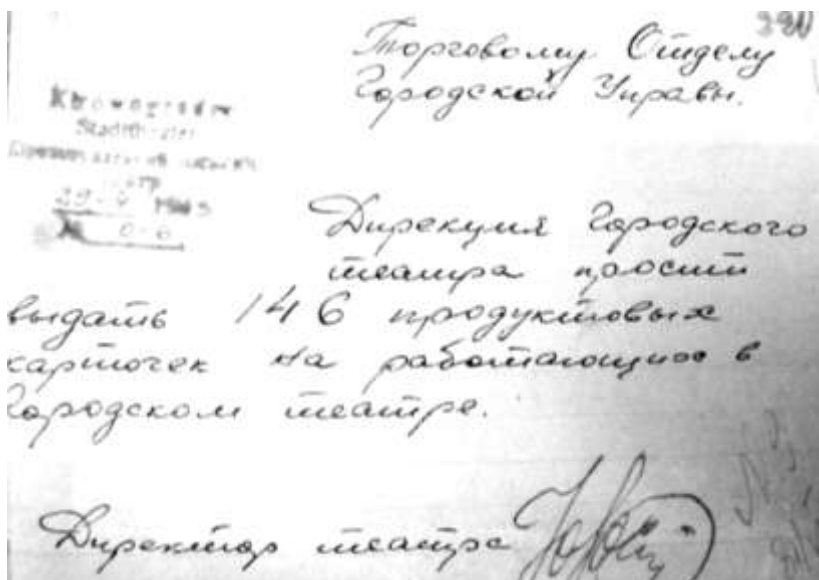 Торговому Отделу
Городской Управы.
Stadttheater
29-V 1943
Дирекция Городского
театра просит
выдать 146 продуктовых
карточек на работающих в
Городском театре.
Директор театра